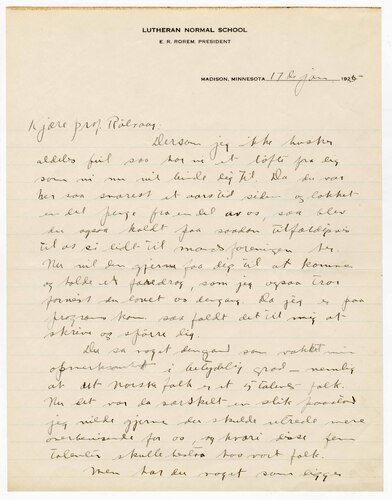 LUTHERAN NORMAL SCHOOL
E. R. ROREM, PRESIDENT
MADISON, MINNESOTA 17de jan 1926
Kjære prof. Rølvaag.
Dersom jeg ikke husker
aldeles feil saa har vi et løfte fra dig
som vi nu vil binde dig til. Da du var
her saa snarest et aarstid siden og lokket
en del penge fra en del av os, saa blev
du ogsaa kaldt paa saadan tilfældigvis
til at si lidt til mandsforeningen her.
Nu vil den gjerne faa dig til at komme
og holde et foredrag, som jeg ogsaa tror
forvist du lovet os dengang. Da jeg er paa
program kom. saa faldt det til mig at
skrive og spørre dig.
Du sa noget dengang som vakte min
opmerksomhet i betydelig grad – nemlig
at det norske folk er et talents folk.
Nu det var da særskilt en slik paastand
jeg vilde gjerne du skulde utrede mere
overbevisende for os, og hvori disse fem
talenter skulde bestaa hos vort folk.
Men har du noget som ligger